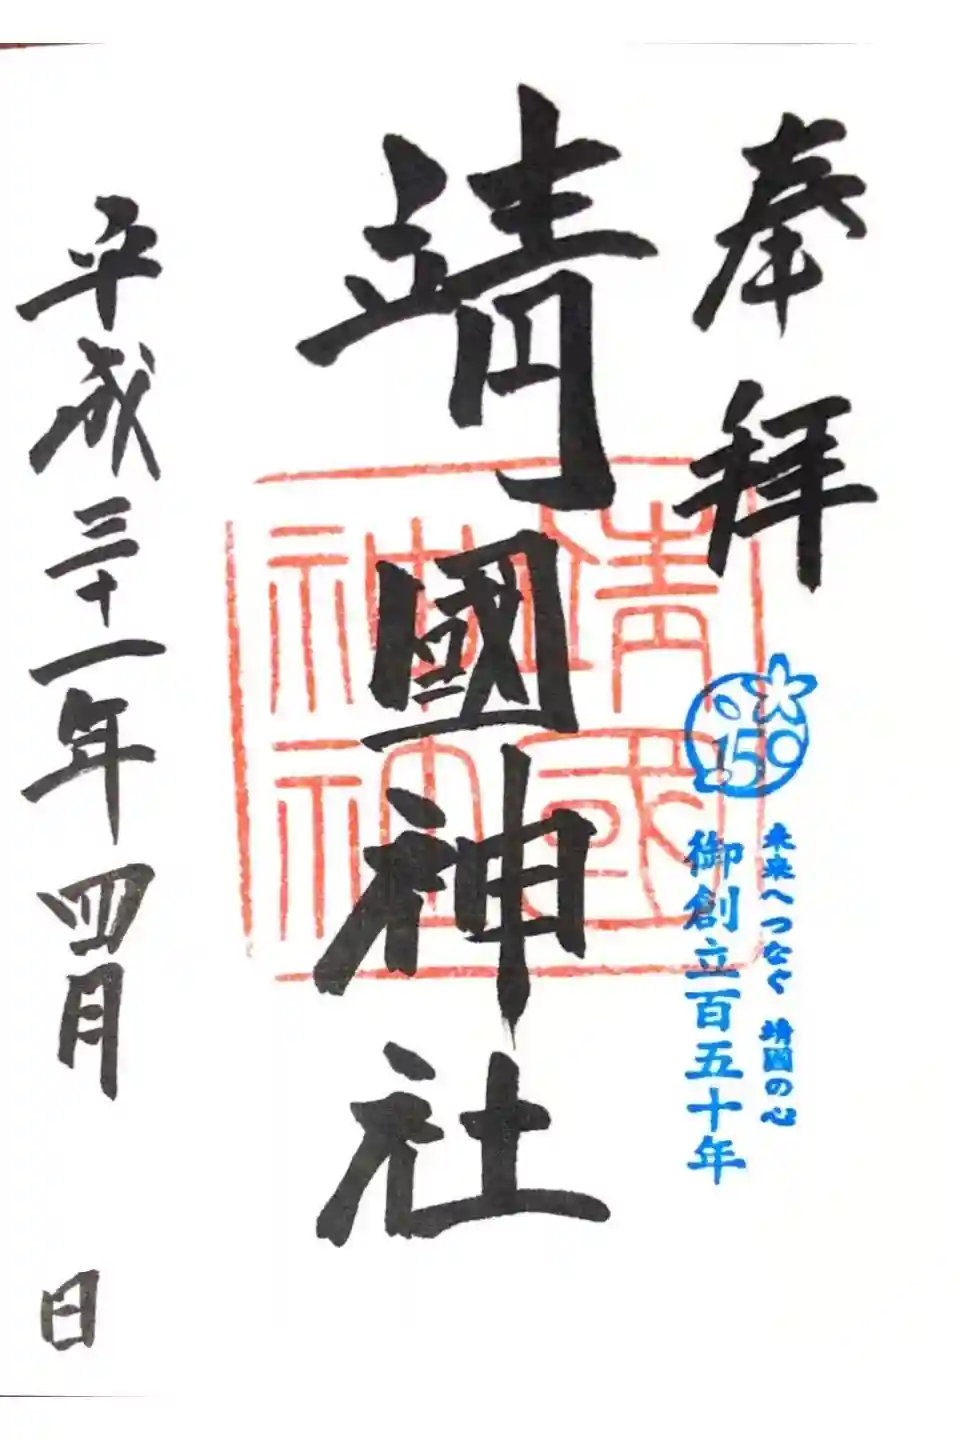 奉拝
150
未来へつなぐ 靖國の心
御創立百五十年
靖國神社
靖國
神社
平成三十一年四月 日